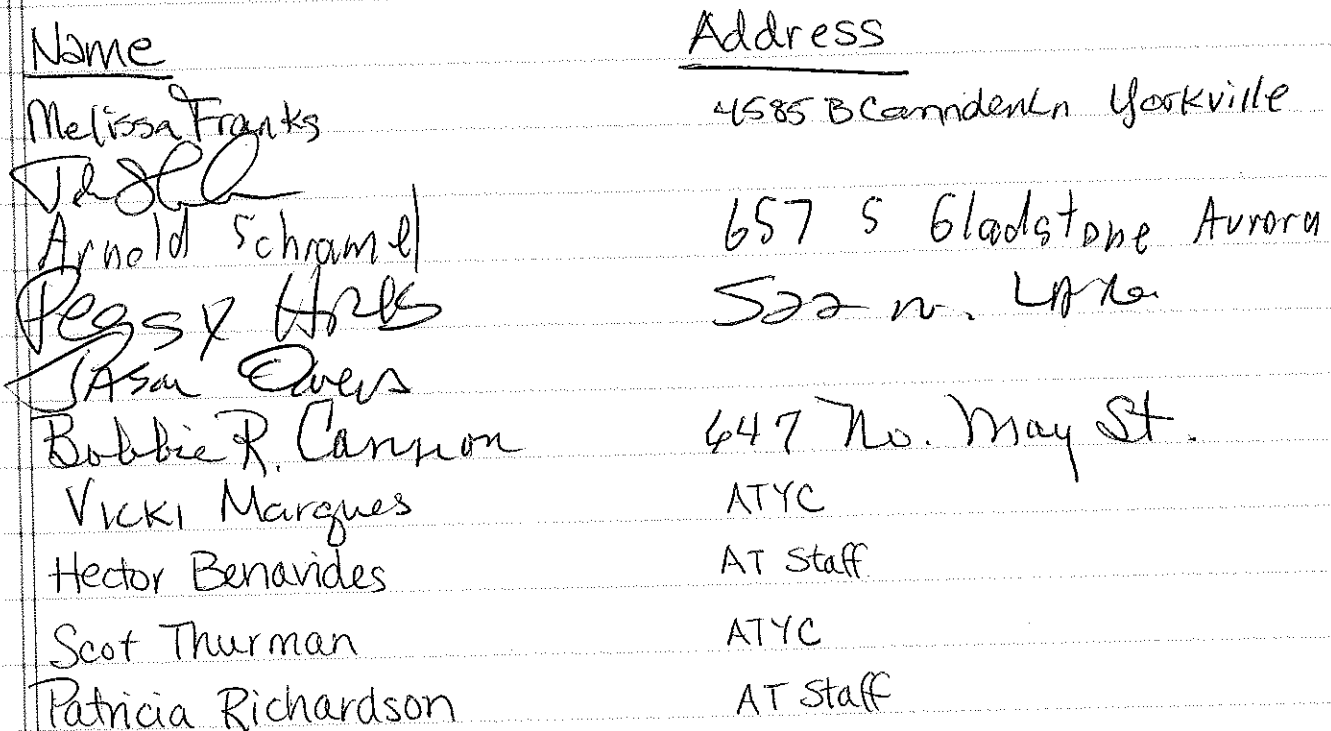 Name Address
Melissa Franks 4585 B Camnden Ln Yorkville
Arnold Schramel 657 S Gladstone Aurora
Peggy Hicks 522 N.
Jason Owens
Bobbie R. Cannon 647 No. May St.
Vicki Marques ATYC
Hector Benavides AT Staff
Scot Thurman ATYC
Patricia Richardson AT Staff